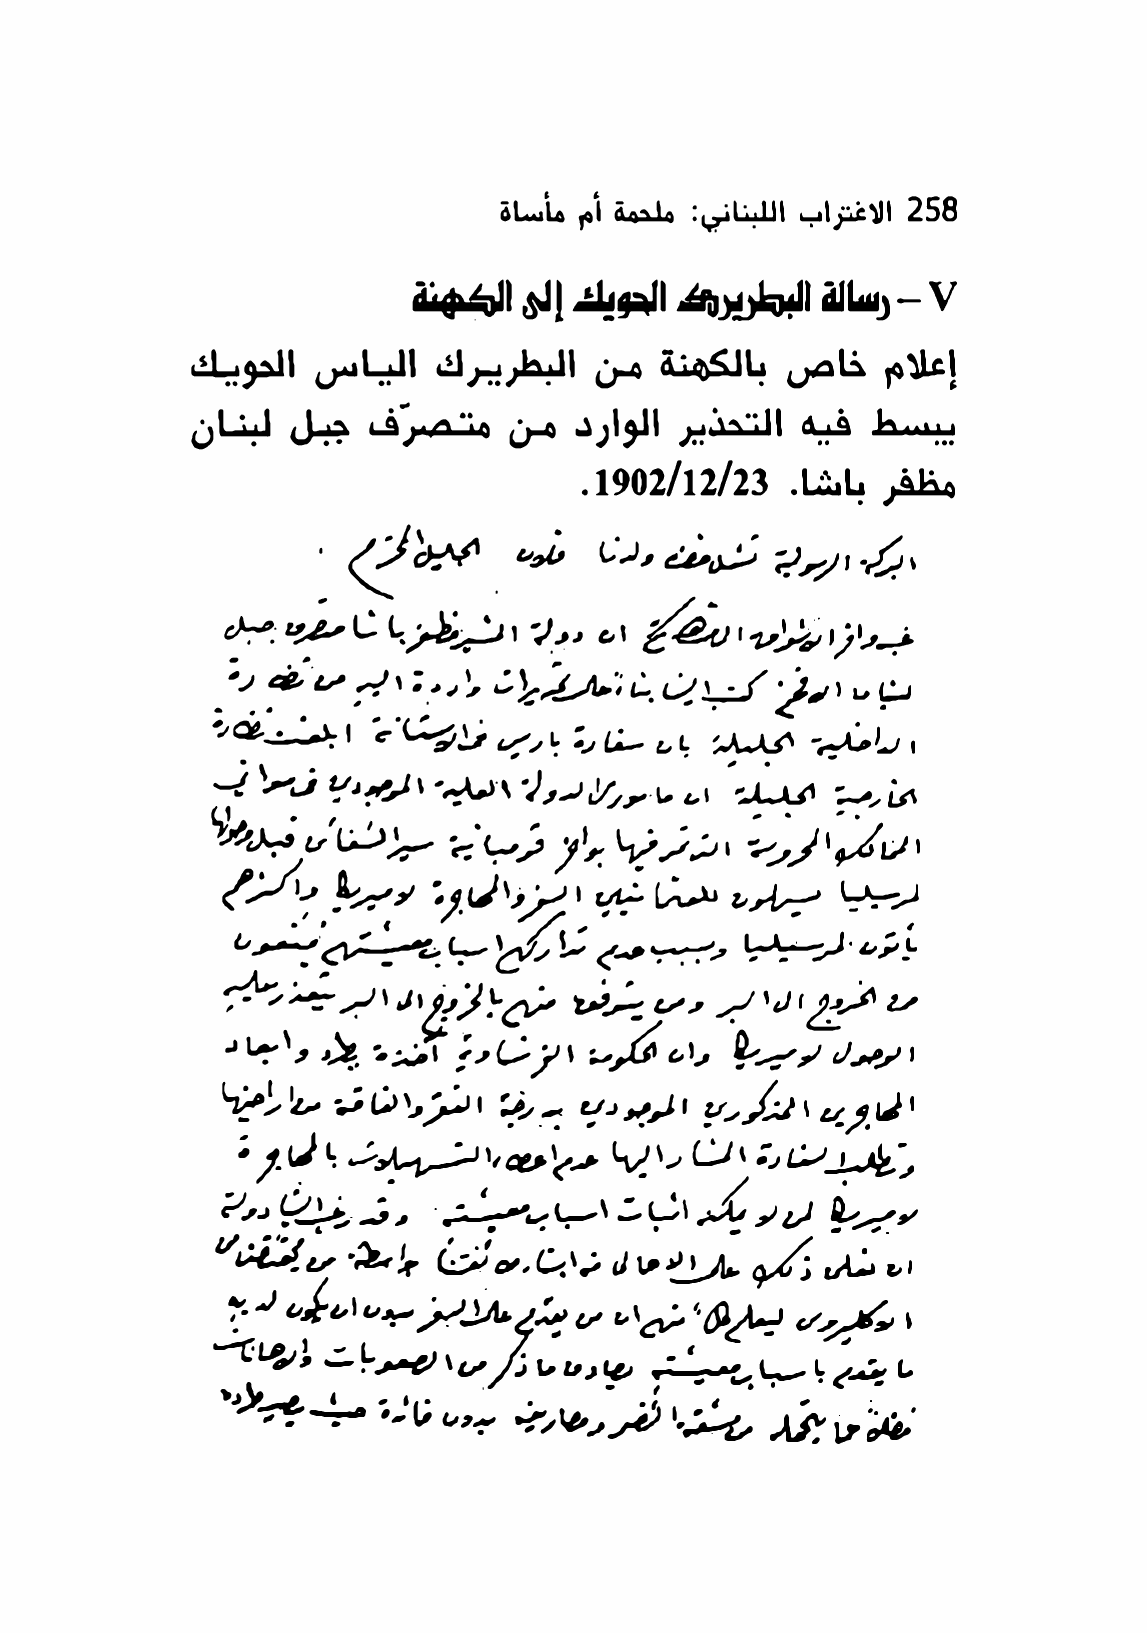 258 الاغتراب اللبناني: ملحمة أم مأساة
V – رسالة البطريرك الحويك إلى الكهنة
إعلام خاص بالكهنة من البطريرك الياس الحويك
يبسط فيه التحذير الوارد من متصرّف جبل لبنان
مظفر باشا. 1902/12/23.
البركة الرسولية تشمل ولدنا الجليل المحترم.
غب وافر الاشواق ان دولة المشير مظفر باشا متصرف جبل
لبنان الافخم كتب الينا بناء على تحريرات واردة اليه من نظارة
الداخلية الجليلة بان سفارة باريس في الاستانة ابلغت نظارة
الخارجية الجليلة ان مأموري الدولة العلية الموجودين في مواني
الممالك المحروسة التي تمر فيها بواخر قومبانية سير السفائن قبل وصولها
لمرسيليا يسهلون للعثمانيين السفر والمهاجرة لاميركا واكثرهم
يأتون لمرسيليا وبسبب عدم تداركهم اسباب معيشتهم يمنعون
من الخروج الى البر ومن منهم بالخروج الى البر يتعذر عليه
الوصول لاميركا وان الحكومة الفرنساوية آخذة بطرد وابعاد
المهاجرين المذكورين الموجودين بدرجة الفقر والفاقة من اراضيها
وتطلب السفارة المشار اليها عدم اعطاء التسهيلات بالمهاجرة
لاميركا لمن لا يمكنه اثبات اسباب معيشته. وقد رغب الينا دولته
ان نعلن ذلك على الاهالي من ابناء طائفتنا بواسطة من
الاكليروس ليعلم كل منهم ان من يقدم على السفر بدون ان يكون لديه
ما يقدم باسباب معيشته يصادف ما ذكر من الصعوبات والاهانات
فضلاً عما يتحمله من مشقة السفر ومصاريفه بدون فائدة حيث يصير طرده